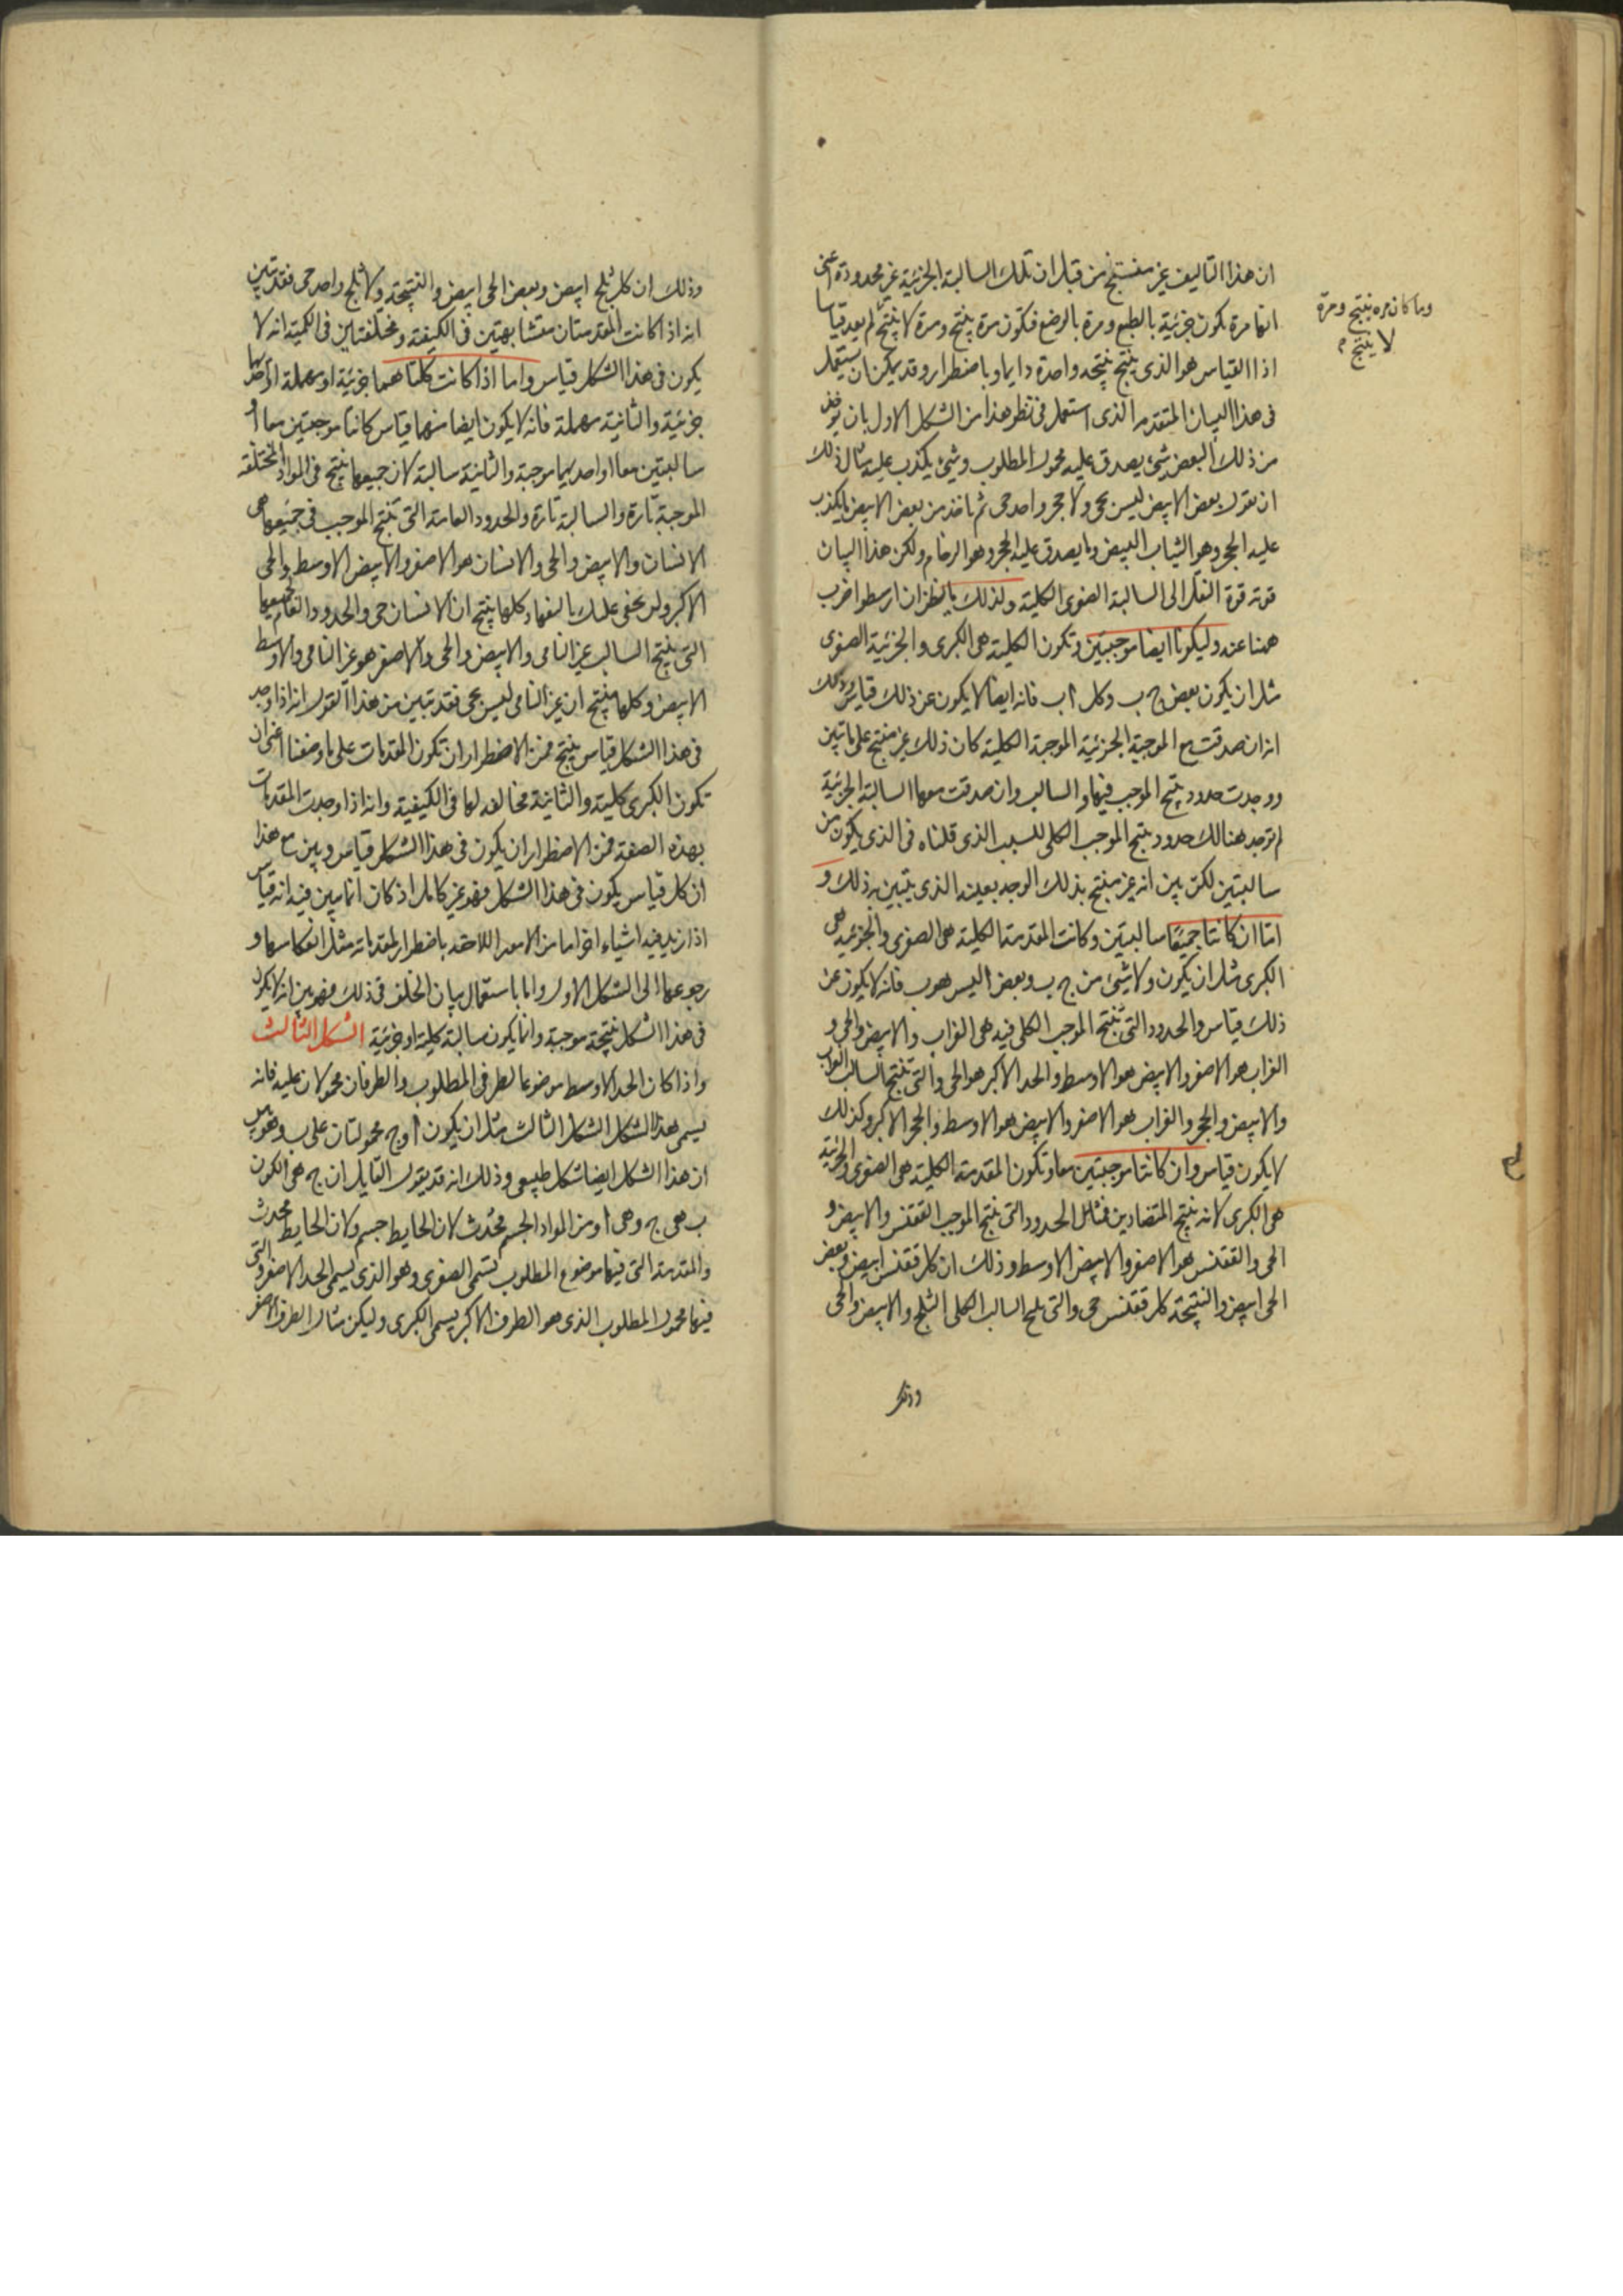 ان هذا التاليف غير منتج من قبل ان تلك السالبة الجزئية غير محدودة اعنى
انها مرة يكون جزئية بالطبع ومرة بالوضع فتكون مرة ينتج ومرة لا ينتج لم يعد قياسا
وما كان مرة ينتج ومرة
لا ينتج
اذ القياس هو الذى ينتج نتيجه واحدة دايما وباضطرار وقد يمكن ان يستعمل
فى هذا البيان المتقدم الذى استعمل فى نظير هذا من الشكل الاول بان يوخذ
من ذلك البعض شىء يصدق عليه محمول المطلوب وشىء يكذب عليه مثال ذلك
ان نقول بعض الابيض ليس بحى ولا حجر واحد حى ثم ناخذ من بعض الابيض ما يكذب
عليه الحجر وهو الثياب البيض وما يصدق عليه الحجر وهو الرخام ولكن هذا البيان
قوته قوة النقل الى السالبة الصغرى الكلية ولذلك ما يظن ان ارسطو اضرب
ههنا عنه وليكونا ايضا موجبتين وتكون الكلية هى الكبرى والجزئية الصغرى
مثل ان يكون بعض ج ب وكل ا ب فانه ايضا لا يكون عن ذلك قياس وذلك
انه ان صدقت مع الموجبة الجزئية الموجبة الكلية كان ذلك غير منتج على ما تبين
ووجدت حدود ينتج الموجب فيها والسالب وان صدقت معها السالبة الجزئية
لم توجد هنالك حدود ينتج الموجب الكلى للسبب الذى قلناه فى الذى يكون من
سالبتين لكن بين انه غير منتج بذلك الوجه بعينه الذى يتبين به ذلك و
اما ان كانتا جميعا سالبتين وكانت المقدمة الكلية هى الصغرى والجزئية هى
الكبرى مثل ان يكون ولا شىء من ج ب وبعض ا ليس هو ب فانه لا يكون عن
ذلك قياس والحدود التى تنتج الموجب الكلى فيه هى الغراب والابيض والحى و
الغراب هو الاصغر والابيض هو الاوسط والحد الاكبر هو الحى والتى تنتج السالب الغراب
والابيض والحجر والغراب هو الاصغر والابيض هو الاوسط والحجر الاكبر وكذلك
لا يكون قياس وان كانتا موجبتين معا وتكون المقدمة الكلية هى الصغرى والجزئية
هى الكبرى لانه ينتج المتضادين فمثال الحدود التى ينتج الموجب الققنس والابيض و
الحى والققنس هو الاصغر والابيض الاوسط وذلك ان كل ققنس ابيض وبعض
الحى ابيض والنتيجة كل ققنس حى والتى تنتج السالب الكلى الثلج والابيض والحى
وذلك
وذلك ان كل ثلج ابيض وبعض الحى ابيض والنتيجة ولا ثلج واحد حى فقد تبين
انه اذا كانت المقدمتان متشابهتين فى الكيفية ومختلفتين فى الكمية انه لا
يكون فى هذا الشكل قياس واما اذا كانت كلتاهما جزئية او مهملة او احديهما
جزئية والثانية مهملة فانه لا يكون ايضا منهما قياس كانتا موجبتين معا او
سالبتين معا او احديهما موجبة والثانية سالبة لان جميعها ينتج فى المواد المختلفه
الموجبة تارة والسالبة تارة والحدود العامة التى تنتج الموجب فى جميعها هى
الانسان والابيض والحى والانسان هو الاصغر والابيض الاوسط والحى
الاكبر ولن يخفى عليك تاليفها وكلها ينتج ان الانسان حى والحدود العام لجميعها
التى ينتج السالب غير النامى والابيض والحى والاصغر هو غير النامى والاوسط
الابيض وكلها ينتج ان غير النامى ليس بحى فقد تبين من هذا القول انه اذا وجد
فى هذا الشكل قياس ينتج فمن الاضطرار ان تكون المقدمات على ما وصفنا اعنى ان
تكون الكبرى كلية والثانية مخالفه لها فى الكيفية وانه اذا وجدت المقدمات
بهذه الصفة فمن الاضطرار ان يكون فى هذا الشكل قياس وبين مع هذا
ان كل قياس يكون فى هذا الشكل فهو غير كامل اذ كان انما يبين فيه انه قياس
اذا زيد فيه اشياء اخر اما من الامور اللاحقه باضطرار لمقدماته مثل انعكاسها و
رجوعها الى الشكل الاول واما باستعمال بيان الخلف فى ذلك فهو بين انه لا يكون
فى هذا الشكل نتيجة موجبة وانما يكون سالبة كلية او جزئية الشكل الثالث
واذا كان الحد الاوسط موضوعا لطرفى المطلوب والطرفان محمولان عليه فانه
يسمى هذا الشكل الشكل الثالث مثل ان يكون ا وج محمولتان على ب وهو بين
ان هذا الشكل ايضا شكل طبيعى وذلك انه قد يقول القايل ان ج هى ا لكون
ب هى ج وهى ا ومن المواد الجسم محدث لان الحايط جسم ولان الحايط محدث
والمقدمة التى فيها موضوع المطلوب تسمى الصغرى وهو الذى يسمى الحد الاصغر والتى
فيها محمول المطلوب الذى هو الطرف الاكبر يسمى الكبرى وليكن مثال الطرف الاصغر